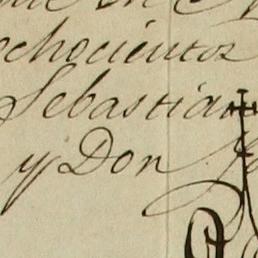 ochocientos
Sebastian
y Don